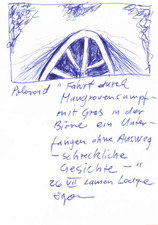 "Fahrt durch
Mangrovensumpf
mit Gras in der
Birne ein Unter-
fangen ohne Ausweg
- schreckliche
Gesichte - "
26 VII Lamen Lodge